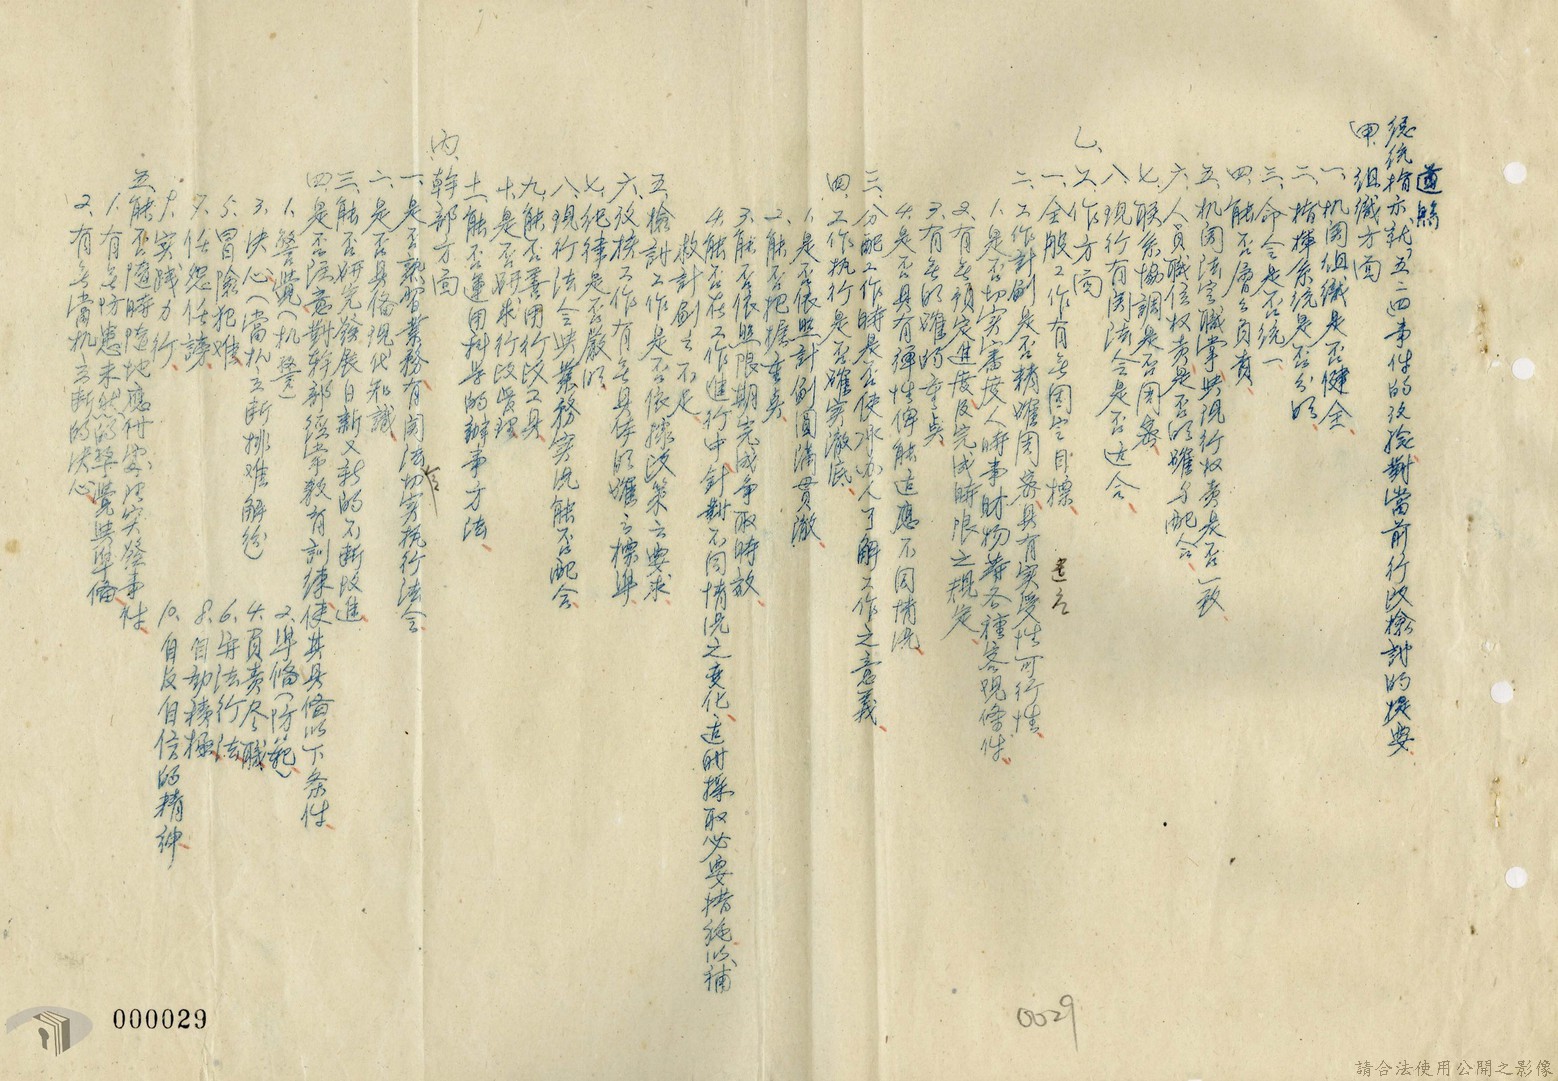 遵照
總統指示就五二四事件的改檢對當前行政檢討的提要
甲、組織方面
一、机関組織是否健全
二、指揮系統是否分明
三、命令是否統一
四、能否層層負責
五、机関法定職掌與現行权責是否一致
六、人員職位权責是否明確与配合
七、聯系協調是否周密
八、現行有関法令是否适合
乙、工作方面
一、全般工作有無固定目標
二、工作計劃是否精確周密具有実受性可行性
1.是否切实審度人時事財物等各種客观條件
2.有無預定進度及完成時限之規定
3.有無明確的重奌
4.是否具有彈性俾能适應不同情况
三、分配工作時是否使承办人了解工作之意義
四、工作执行是否確实澈底
1.是否依照計劃圓滿貫澈
2.能否把握重奌
3.能否依照限期完成争取時效
4.能否在工作進行中針對不同情况之变化适时採取必要措施以補
救計劃之不足
五、檢討工作是否依據决策之要求
六、攷核工作有無具体明確之標準
七、纪律是否嚴明
八、現行法令與業務实况能否配合
九、能否善用行政工具
十、是否研求行政管理
十一、能否運用科学的辦事方法
丙、幹部方面
一、是否熟習業務有関法令切实执行法令
二、是否具備現代知識
三、能否研究發展日新又新的不断改進
四、是否注意對幹部經常教育訓練使其具備以下条件
1.警覺(机警) 2.準備(防範)
3.决心(當机立断排难解纷) 4.負責尽職
5.冒險犯难 6.守法行法
7.任怨任謗 8.自動積極
9.实踐力行 10.自反自信的精神
五、能否隨時隨地應付突發事件
1.有無防患未然的警覺與準備
2.有無當机立断的决心
0029
000029
請合法使用公開之影像